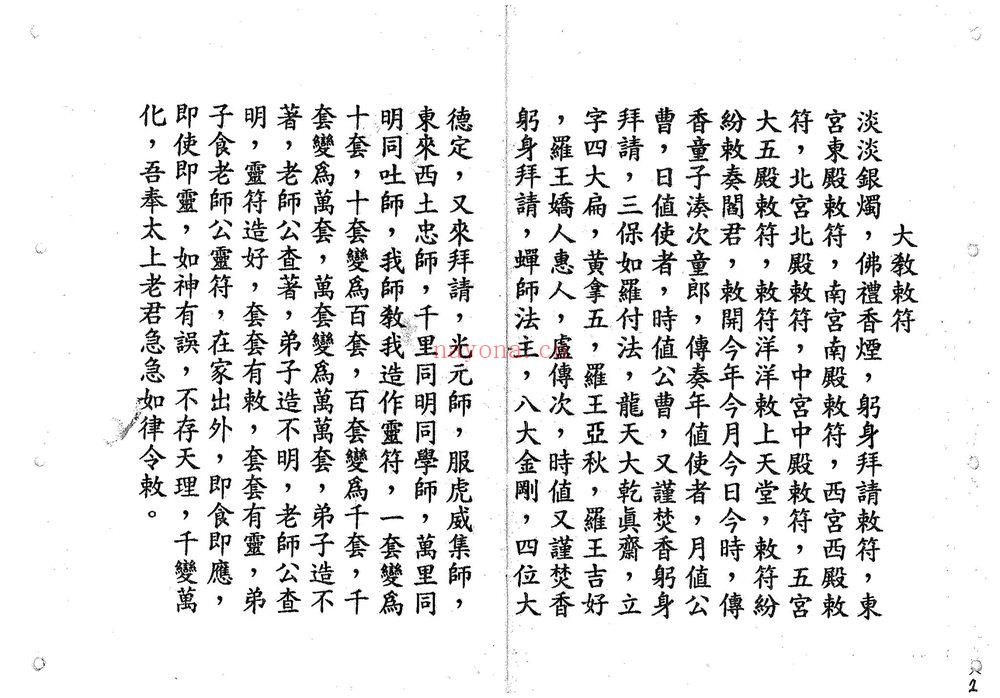 大教敕符
淡淡銀燭，佛禮香煙，躬身拜請敕符，東
宮東殿敕符，南宮南殿敕符，西宮西殿敕
符，北宮北殿敕符，中宮中殿敕符，五宮
大五殿敕符，敕符洋洋敕上天堂，敕符紛
紛敕奏閻君，敕開今年今月今日今時，傳
香童子湊次童郎，傳奏年值使者，月值公
曹，日值使者，時值公曹，又謹焚香躬身
拜請，三保如羅付法，龍天大乾眞齋，立
字四大扁，黃拿五，羅王亞秋，羅王吉好
，羅王嬌人惠人，盧傳次，時值又謹焚香
躬身拜請，蟬師法主，八大金剛，四位大
德定，又來拜請，光元師，服虎威集師，
東來西土忠師，千里同明同學師，萬里同
明同吐師，我師教我造作靈符，一套變爲
十套，十套變爲百套，百套變爲千套，千
套變爲萬套，萬套變爲萬萬套，弟子造不
著，老師公查著，弟子造不明，老師公查
明，靈符造好，套套有敕，套套有靈，弟
子食老師公靈符，在家出外，即食即應，
即使即靈，如神有誤，不存天理，千變萬
化，吾奉太上老君急急如律令敕。
nayona.cn
2